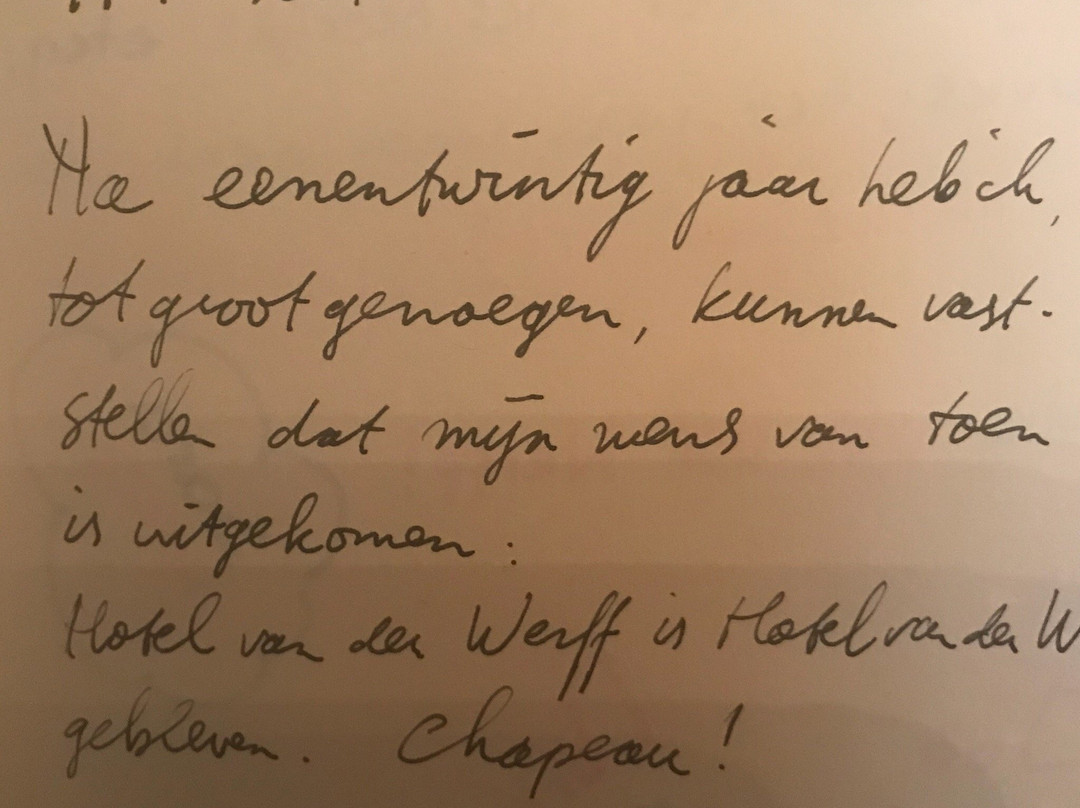 Na eenentwintig jaar heb ik,
tot groot genoegen, kunnen vast-
stellen dat mijn wens van toen
is uitgekomen:
Hotel van der Werff is Hotel van der W
gebleven. Chapeau!